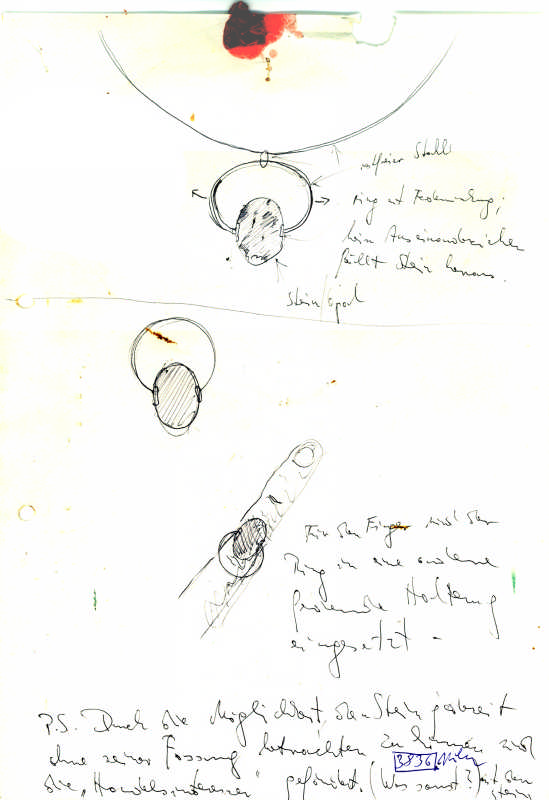 rostfreier Stahl
Ring mit Federwirkung;
beim Auseinanderziehen
fällt Stein heraus.
Stein/
Für den Finger wird der
Ring in eine andere
Halterung
eingesetzt -
P.S. Durch die Möglichkeit, den Stein jederzeit
ohne seine Fassung betrachten zu können wird
die "Handelsinteresse" gefördert. (Was sonst? mit den
3836
Steine